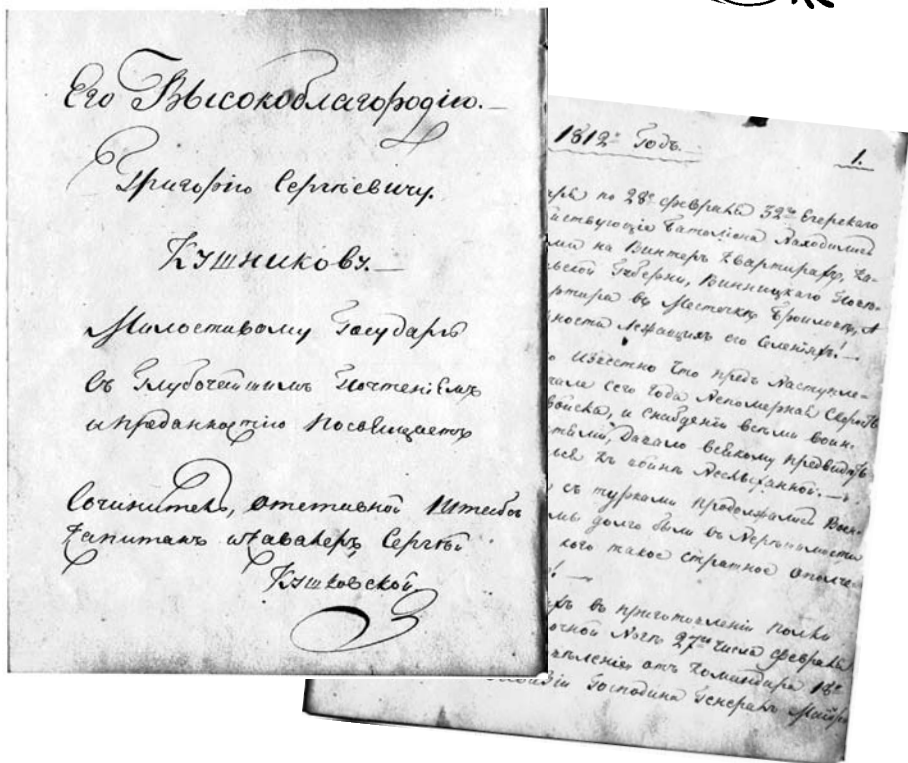 Его Высокоблагородію.
Григорію Сергѣевичу.
Кушникову.
Милостивому Государю
съ Глубочайшимъ Почтеніемъ
и преданностію Посвящаетъ
Сочинитель, отставной Штабсъ
Капитанъ и Кавалеръ Сергѣй
Кушковской
1812го Годъ. 1.
по 28е февраля 32го Егерскаго
Баталіона Находились
на Винтеръ Квартирахъ, Ка-
Губерніи, Винницкаго Повѣ-
въ Мѣстечкѣ
Лежащихъ его Селеніяхъ!
Извѣстно Что предъ Наступле-
сего Года Непомерная Скорость
войска, и снабженіи всѣми воин-
Давало всякому предвидѣть
къ войнѣ Неслыханной.
съ турками продолжались
долго были въ Нерѣшимости
кого такое страшное ополче-
!
въ приготовленіи полки
Ночи 27го числа февраля
отъ Командира 18й
Господина Генералъ Майора